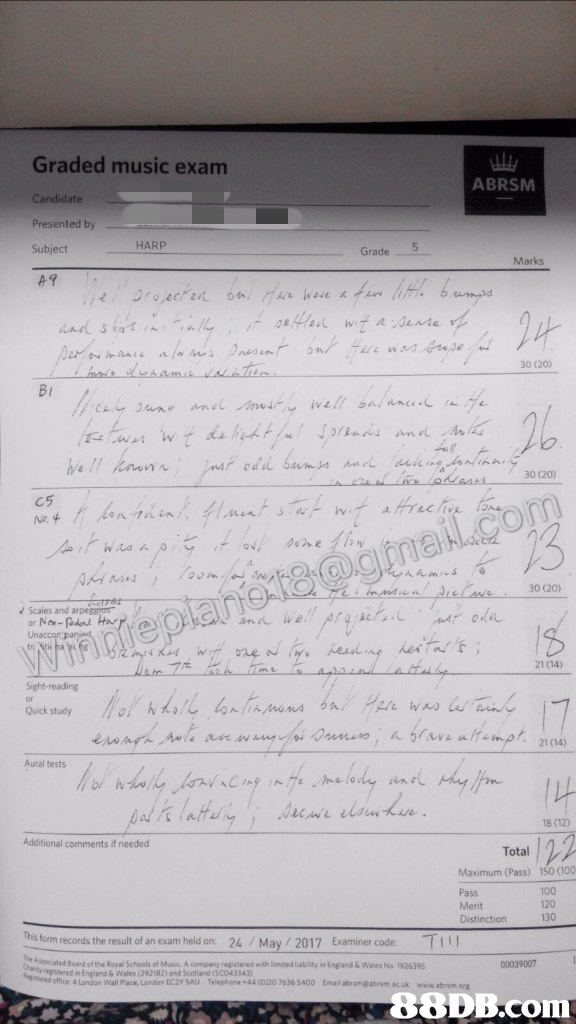 Graded music exam
ABRSM
Candidate
Presented by
Subject HARP Grade 5
Marks
A9
Well projected but there were a few little bumps
and slips initially; it settled with a sense of
performance always present but there was scope for
more dynamic variation.
24
30 (20)
B1
Nicely sung and mostly well balanced in the
textures with delightful spreads and notes
well known; just odd bumps and full
in one or two phrases
26
30 (20)
C5
No. 4
A confident, fluent start with attractive tone
so it was a pity it lost some flow in
phrases, room for dynamics to
the musical picture.
23
30 (20)
Scales and arpeggios
or Non-Pedal Harp
Unaccompanied
and well projected just odd
with one or two
Dom 7th took time to appear latterly
18
21 (14)
Sight-reading
or
Quick study
Not wholly continuous but there was certainly
enough note accuracy for success; a brave attempt.
17
21 (14)
Aural tests
Not wholly convincing in the melody and rhythm
parts latterly; secure elsewhere.
14
18 (12)
Additional comments if needed
Total 122
Maximum (Pass) 150 (100
Pass 100
Merit 120
Distinction 130
This form records the result of an exam held on: 24 / May / 2017 Examiner code: T111
The Associated Board of the Royal Schools of Music. A company registered with limited liability in England & Wales No 1926395
00039007
Charity registered in England & Wales (292182) and Scotland (SC043343)
Registered office: 4 London Wall Place, London EC2Y 5AU Telephone +44 (0)20 7636 5400 Email abrsm@abrsm.ac.uk www.abrsm.org
winniepiano18@gmail.com
88DB.com